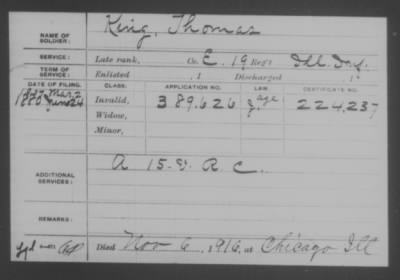 NAME OF SOLDIER: King, Thomas
SERVICE: Late rank, Co. E, 19 Reg't Ill. Inf.
TERM OF SERVICE: Enlisted , 1 Discharged , 1
DATE OF FILING. CLASS. APPLICATION NO. LAW. CERTIFICATE NO.
1880 June 24 Invalid, 389.626 age 224.237
Widow,
Minor,
ADDITIONAL SERVICES: A 15 V. R. C.
REMARKS:
Died Nov 6, 1916, at Chicago Ill